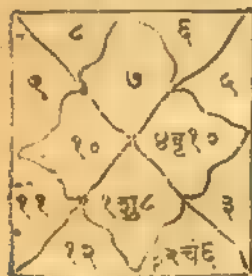 ८ ६
९ ७ ५
१० ४बृ१०
११ १शु८ ३
१२ २चं६